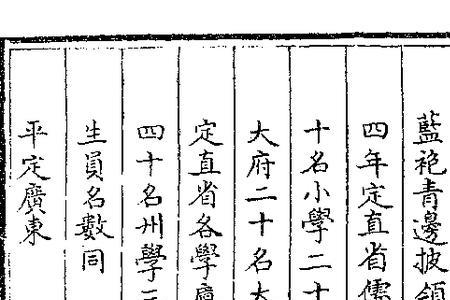 藍袍青邊披領
四年定直省儒
十名小學二十
大府二十名大
定直省各學廩
四十名州學三
生員名數同
平定廣東